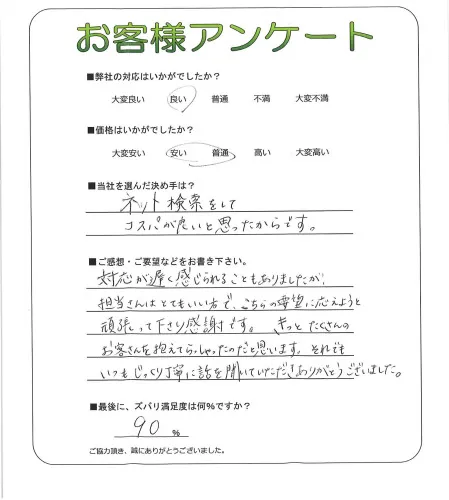 お客様アンケート
■弊社の対応はいかがでしたか？
大変良い 良い 普通 不満 大変不満
■価格はいかがでしたか？
大変安い 安い 普通 高い 大変高い
■当社を選んだ決め手は？
ネット検索をして
コスパが良いと思ったからです。
■ご感想・ご要望などをお書き下さい。
対応が遅く感じられることもありましたが、
担当さんはとてもいい方で、こちらの要望に応えようと
頑張って下さり感謝です。 きっとたくさんの
お客さんを抱えてらっしゃったのだと思います。それでも
いつもじっくり丁寧に話を聞いていただきありがとうございました。
■最後に、ズバリ満足度は何％ですか？
90 ％
ご協力頂き、誠にありがとうございました。